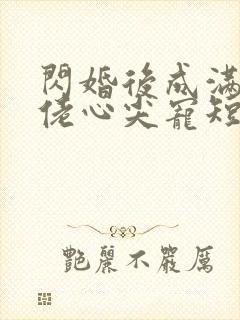 閃婚後成滿
佬心尖寵短
艷麗不嚴厲